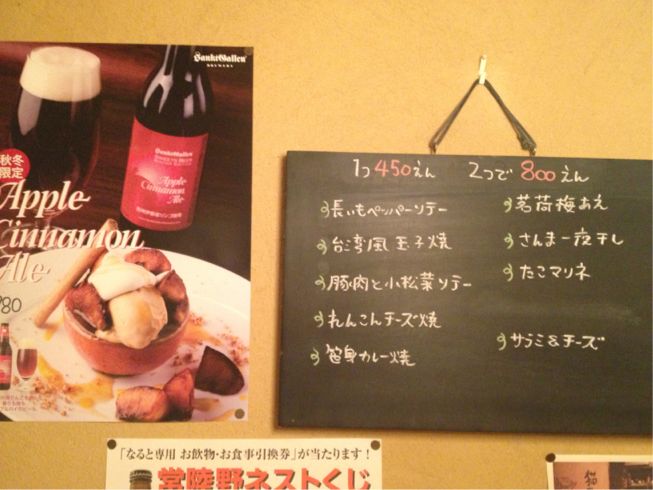 SanktGallen
BREWERY
秋冬
限定
Apple
Cinnamon
Ale
SanktGallen
Apple
Cinnamon
Ale
1つ450えん 2つで800えん
長いもペッパーソテー
台湾風玉子焼
豚肉と小松菜ソテー
れんこんチーズ焼
笹身カレー焼
茗荷梅あえ
さんま一夜干し
たこマリネ
サラミ&チーズ
「なると専用 お飲物・お食事引換券」が当たります!
常陸野ネストくじ
猫